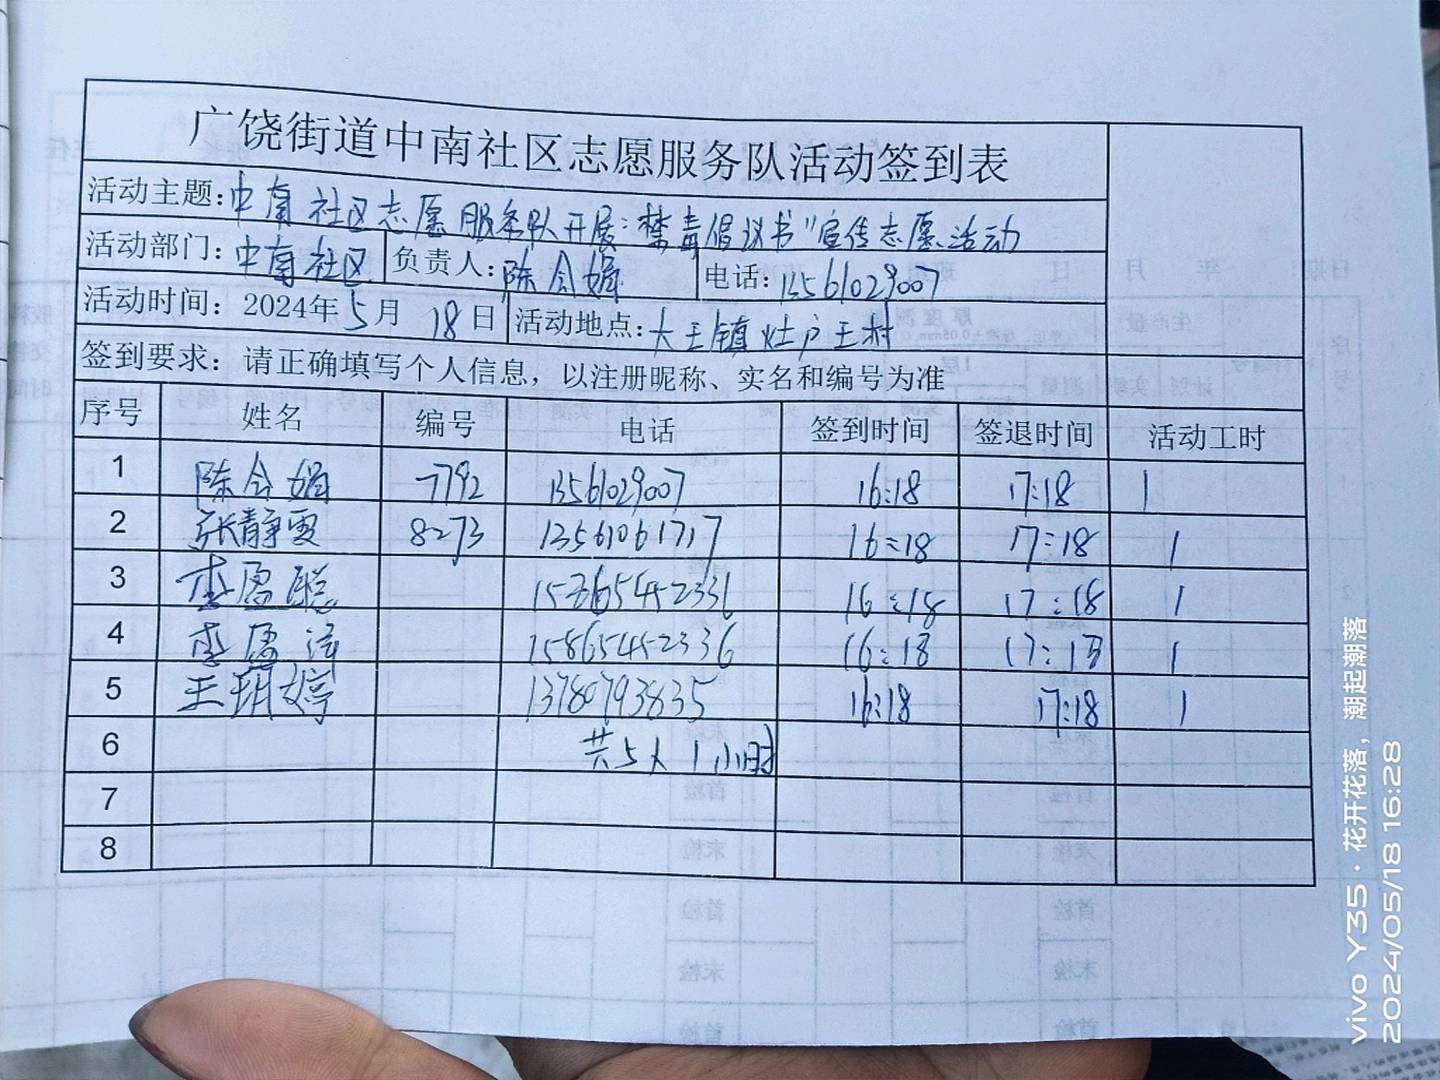 广饶街道中南社区志愿服务队活动签到表
活动主题:中南社区志愿服务队开展:禁毒倡议书"宣传志愿活动
活动部门:中南社区 负责人:陈令娟 电话:13561029007
活动时间:2024年5月18日 活动地点:大王镇灶户王村
签到要求:请正确填写个人信息,以注册昵称、实名和编号为准
序号 姓名 编号 电话 签到时间 签退时间 活动工时
1 陈令娟 7792 13561029007 16:18 17:18 1
2 张静雯 8273 13561061717 16:18 17:18 1
3 李愿聪 16:18 17:18 1
4 李愿 15865452336 16:18 17:18 1
5 王玥婷 13780793835 16:18 17:18 1
6 共5人1小时
7
8
vivo Y35 · 花开花落,潮起潮落
2024/05/18 16:28